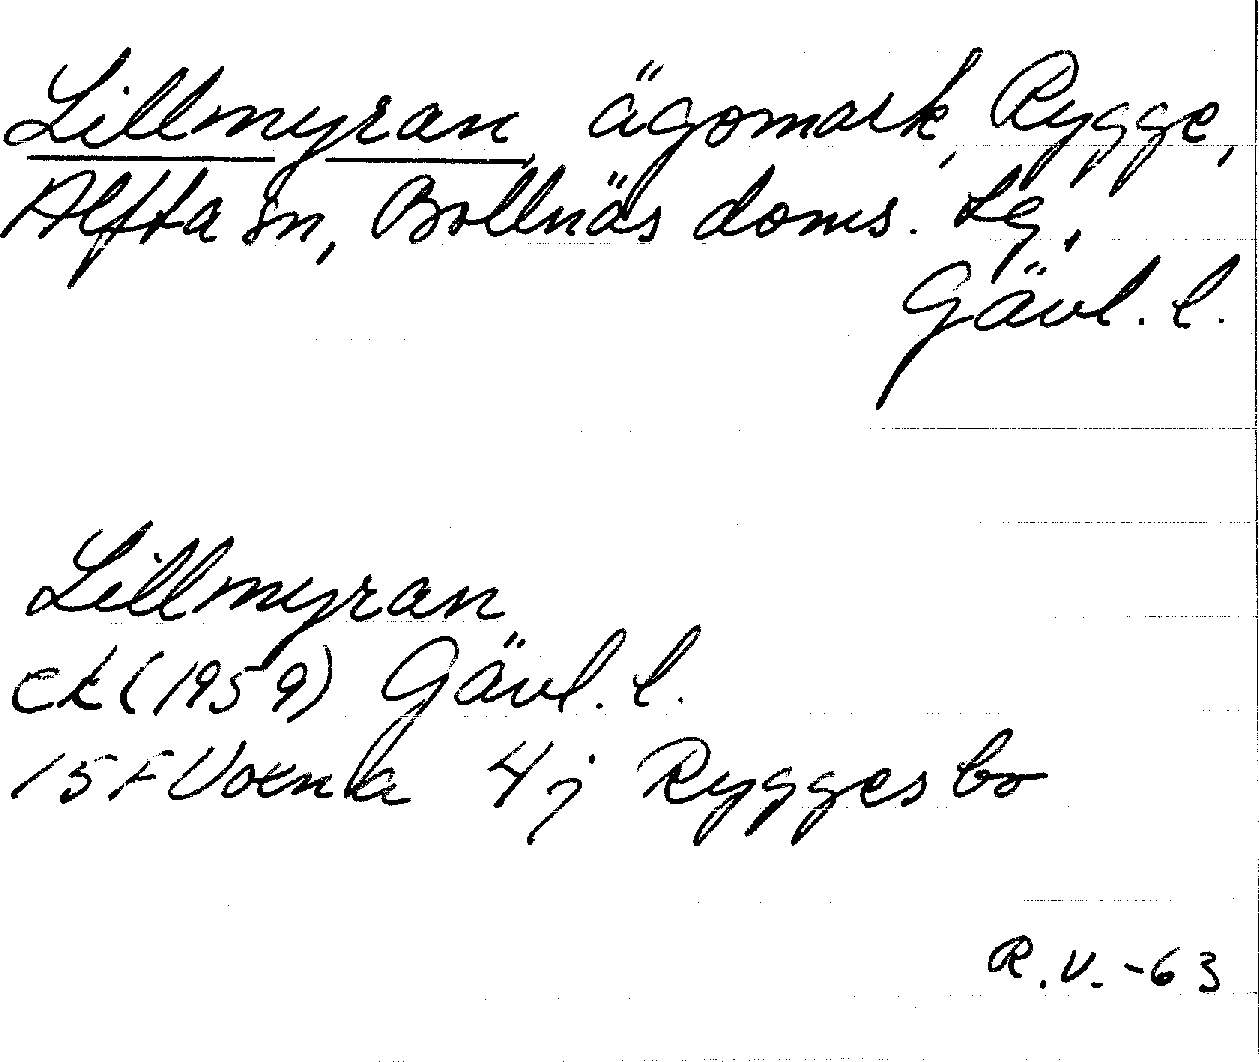 Lillmyran, ägomark, Rygge,
Alfta sn, Bollnäs doms. Lg,
Gävl. l.
Lillmyran
ek (1959) Gävl. l.
15 F Voxna 4j Ryggesbo
R.V. -63